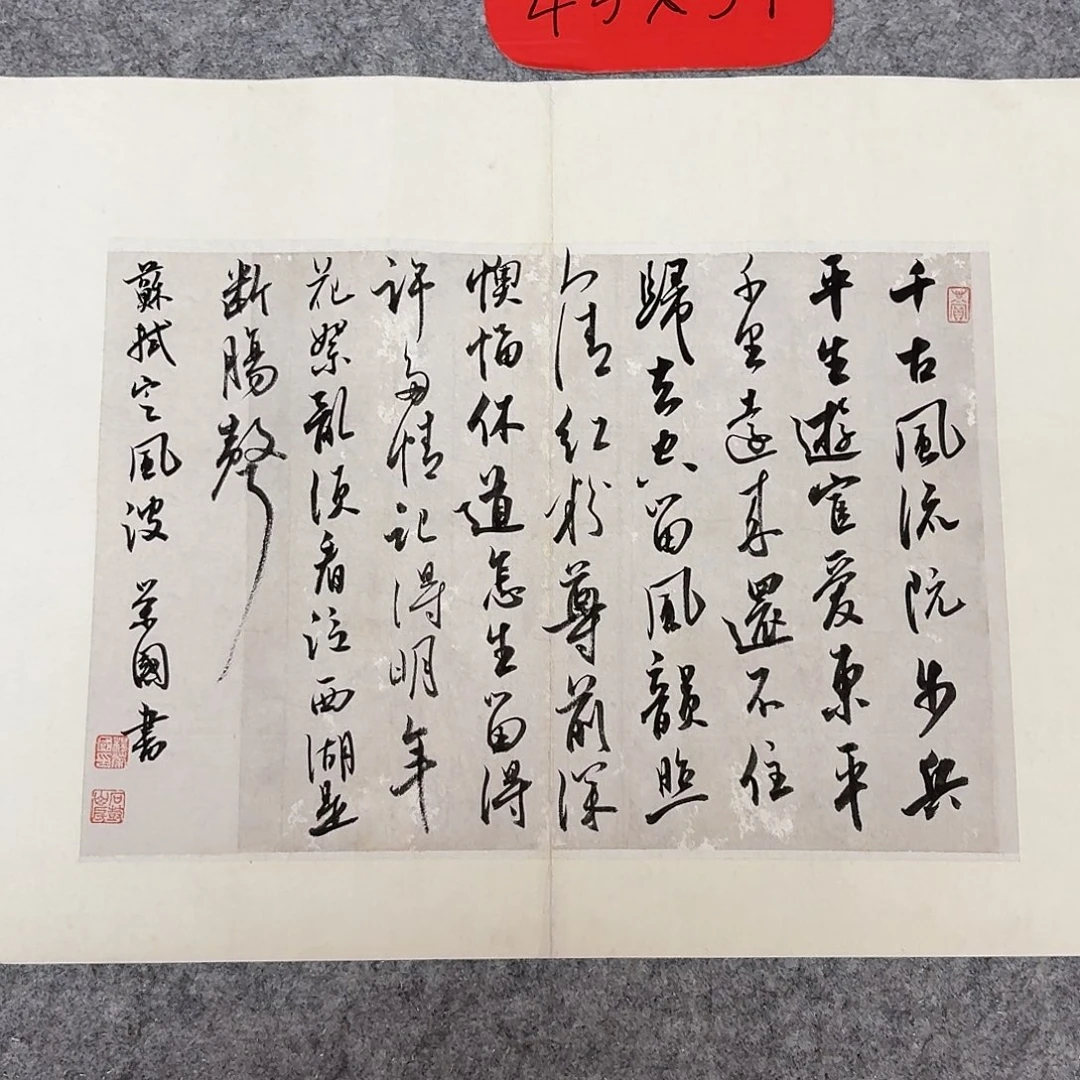 千古風流阮步兵
平生遊宦愛東平
千里遠來還不住
歸去空留風韻照
人清紅粉尊前深
懊惱休道怎生留得
許多情記得明年
花絮亂須看泛西湖是
断腸聲
蘇軾定風波 榮國書